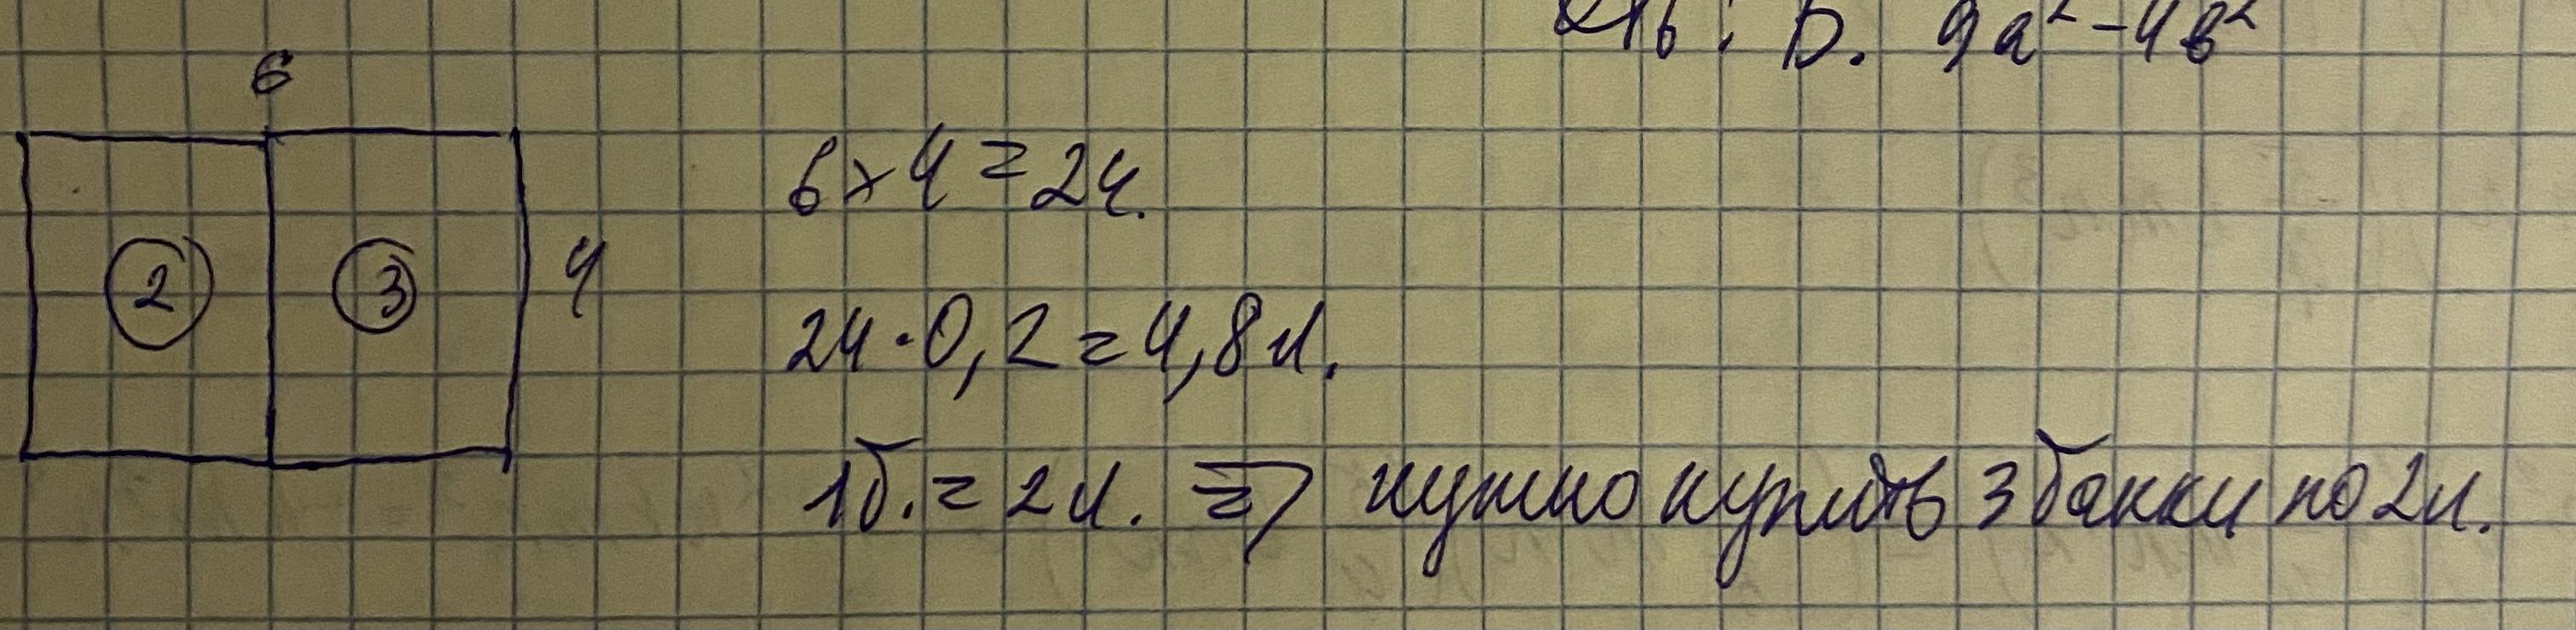 Отв: D. 9a²-4b²
6
6×4=24.
2 3 4
24·0,2=4,8л.
1б.=2л. => нужно купить 3 банки по 2л.